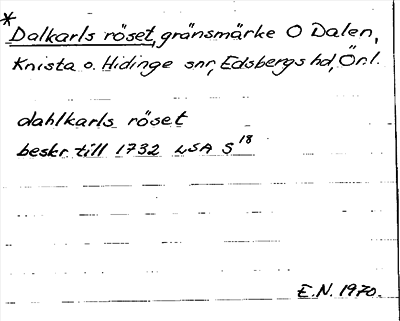 *
Dalkarls röset, gränsmärke O Dalen,
Knista o. Hidinge snr, Edsbergs hd, Örl.
dahlkarls röset
beskr till 1732 LSA S 18
E.N. 1970.